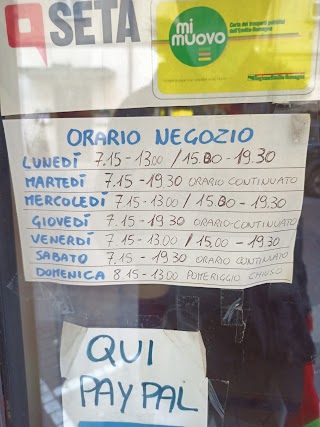 SETA
mi
muovo
Carta dei trasporti pubblici
dell'Emilia-Romagna
ORARIO NEGOZIO
LUNEDÌ 7.15-13.00 / 15.30-19.30
MARTEDÌ 7.15-19.30 ORARIO CONTINUATO
MERCOLEDÌ 7.15-13.00 / 15.30-19.30
GIOVEDÌ 7.15-19.30 ORARIO-CONTINUATO
VENERDÌ 7.15-13.00 / 15.00-19.30
SABATO 7.15-19.30 ORARIO CONTINUATO
DOMENICA 8.15-13.00 POMERIGGIO CHIUSO
QUI
PAYPAL